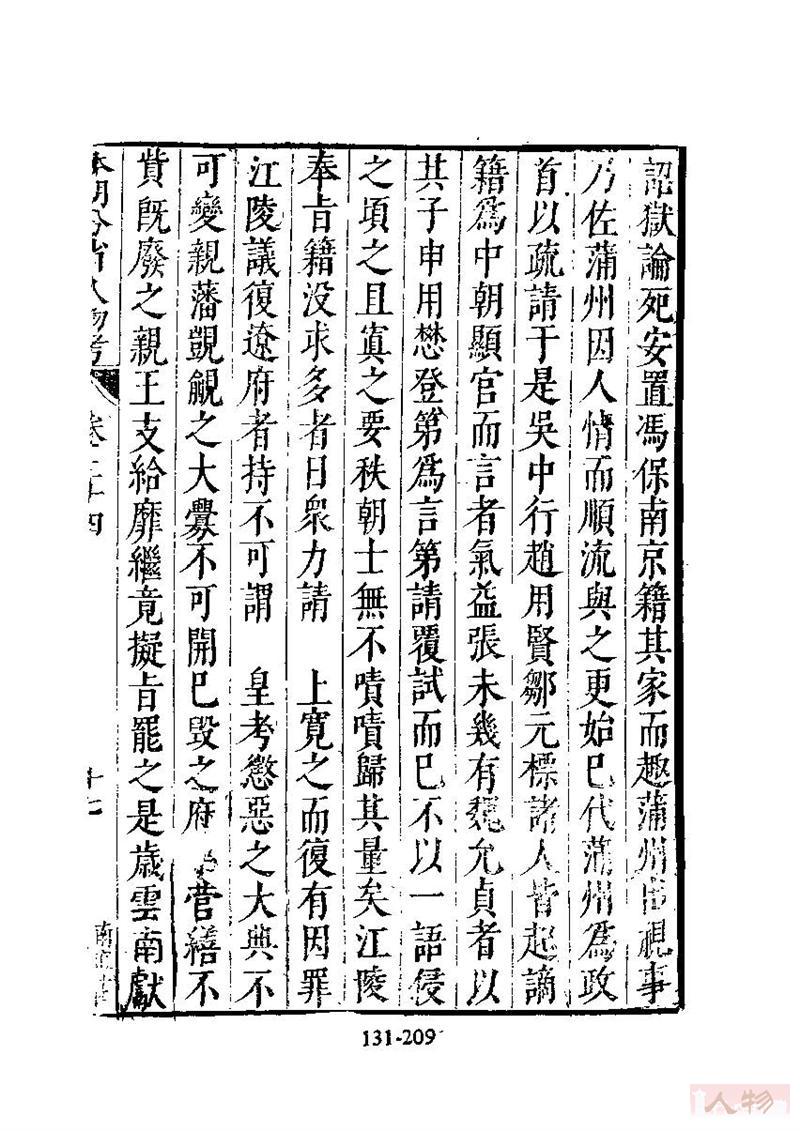 詔獄論死安置馮保南京籍其家而趣蒲州出視事
乃佐蒲州因人情而順流與之更始已代蒲州爲政
首以疏請于是吳中行趙用賢鄒元標諸人皆起謫
籍爲中朝顯官而言者氣益張未幾有魏允貞者以
其子申用懋登第爲言第請覆試而已不以一語侵
之頃之且寘之要秩朝士無不嘖嘖歸其量矣江陵
奉旨籍没求多者日衆力請　上寬之而復有因罪
江陵議復遼府者持不可謂　皇考懲惡之大典不
可變親藩覬覦之大釁不可開已毀之府　營繕不
貲既廢之親王支給靡繼竟擬旨罷之是歲雲南獻
本朝分省人物考
卷二十四
十七
131-209
人物